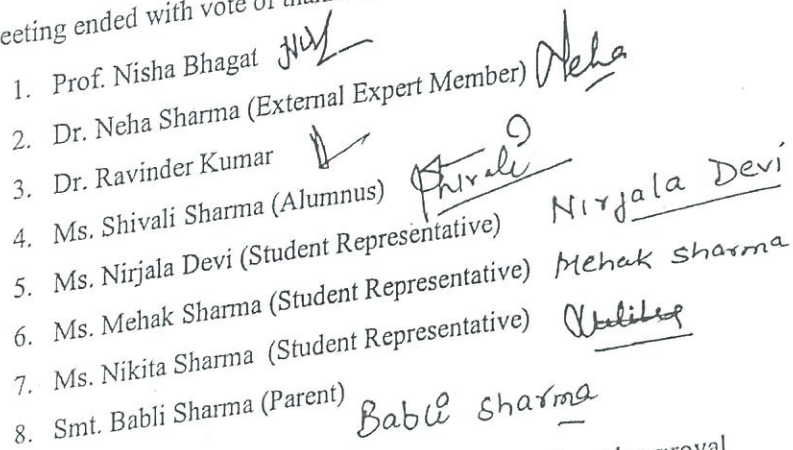 eeting ended with vote of
1. Prof. Nisha Bhagat
2. Dr. Neha Sharma (External Expert Member) Neha
3. Dr. Ravinder Kumar
4. Ms. Shivali Sharma (Alumnus) Shivali
5. Ms. Nirjala Devi (Student Representative) Nirjala Devi
6. Ms. Mehak Sharma (Student Representative) Mehak sharma
7. Ms. Nikita Sharma (Student Representative)
8. Smt. Babli Sharma (Parent) Babli sharma